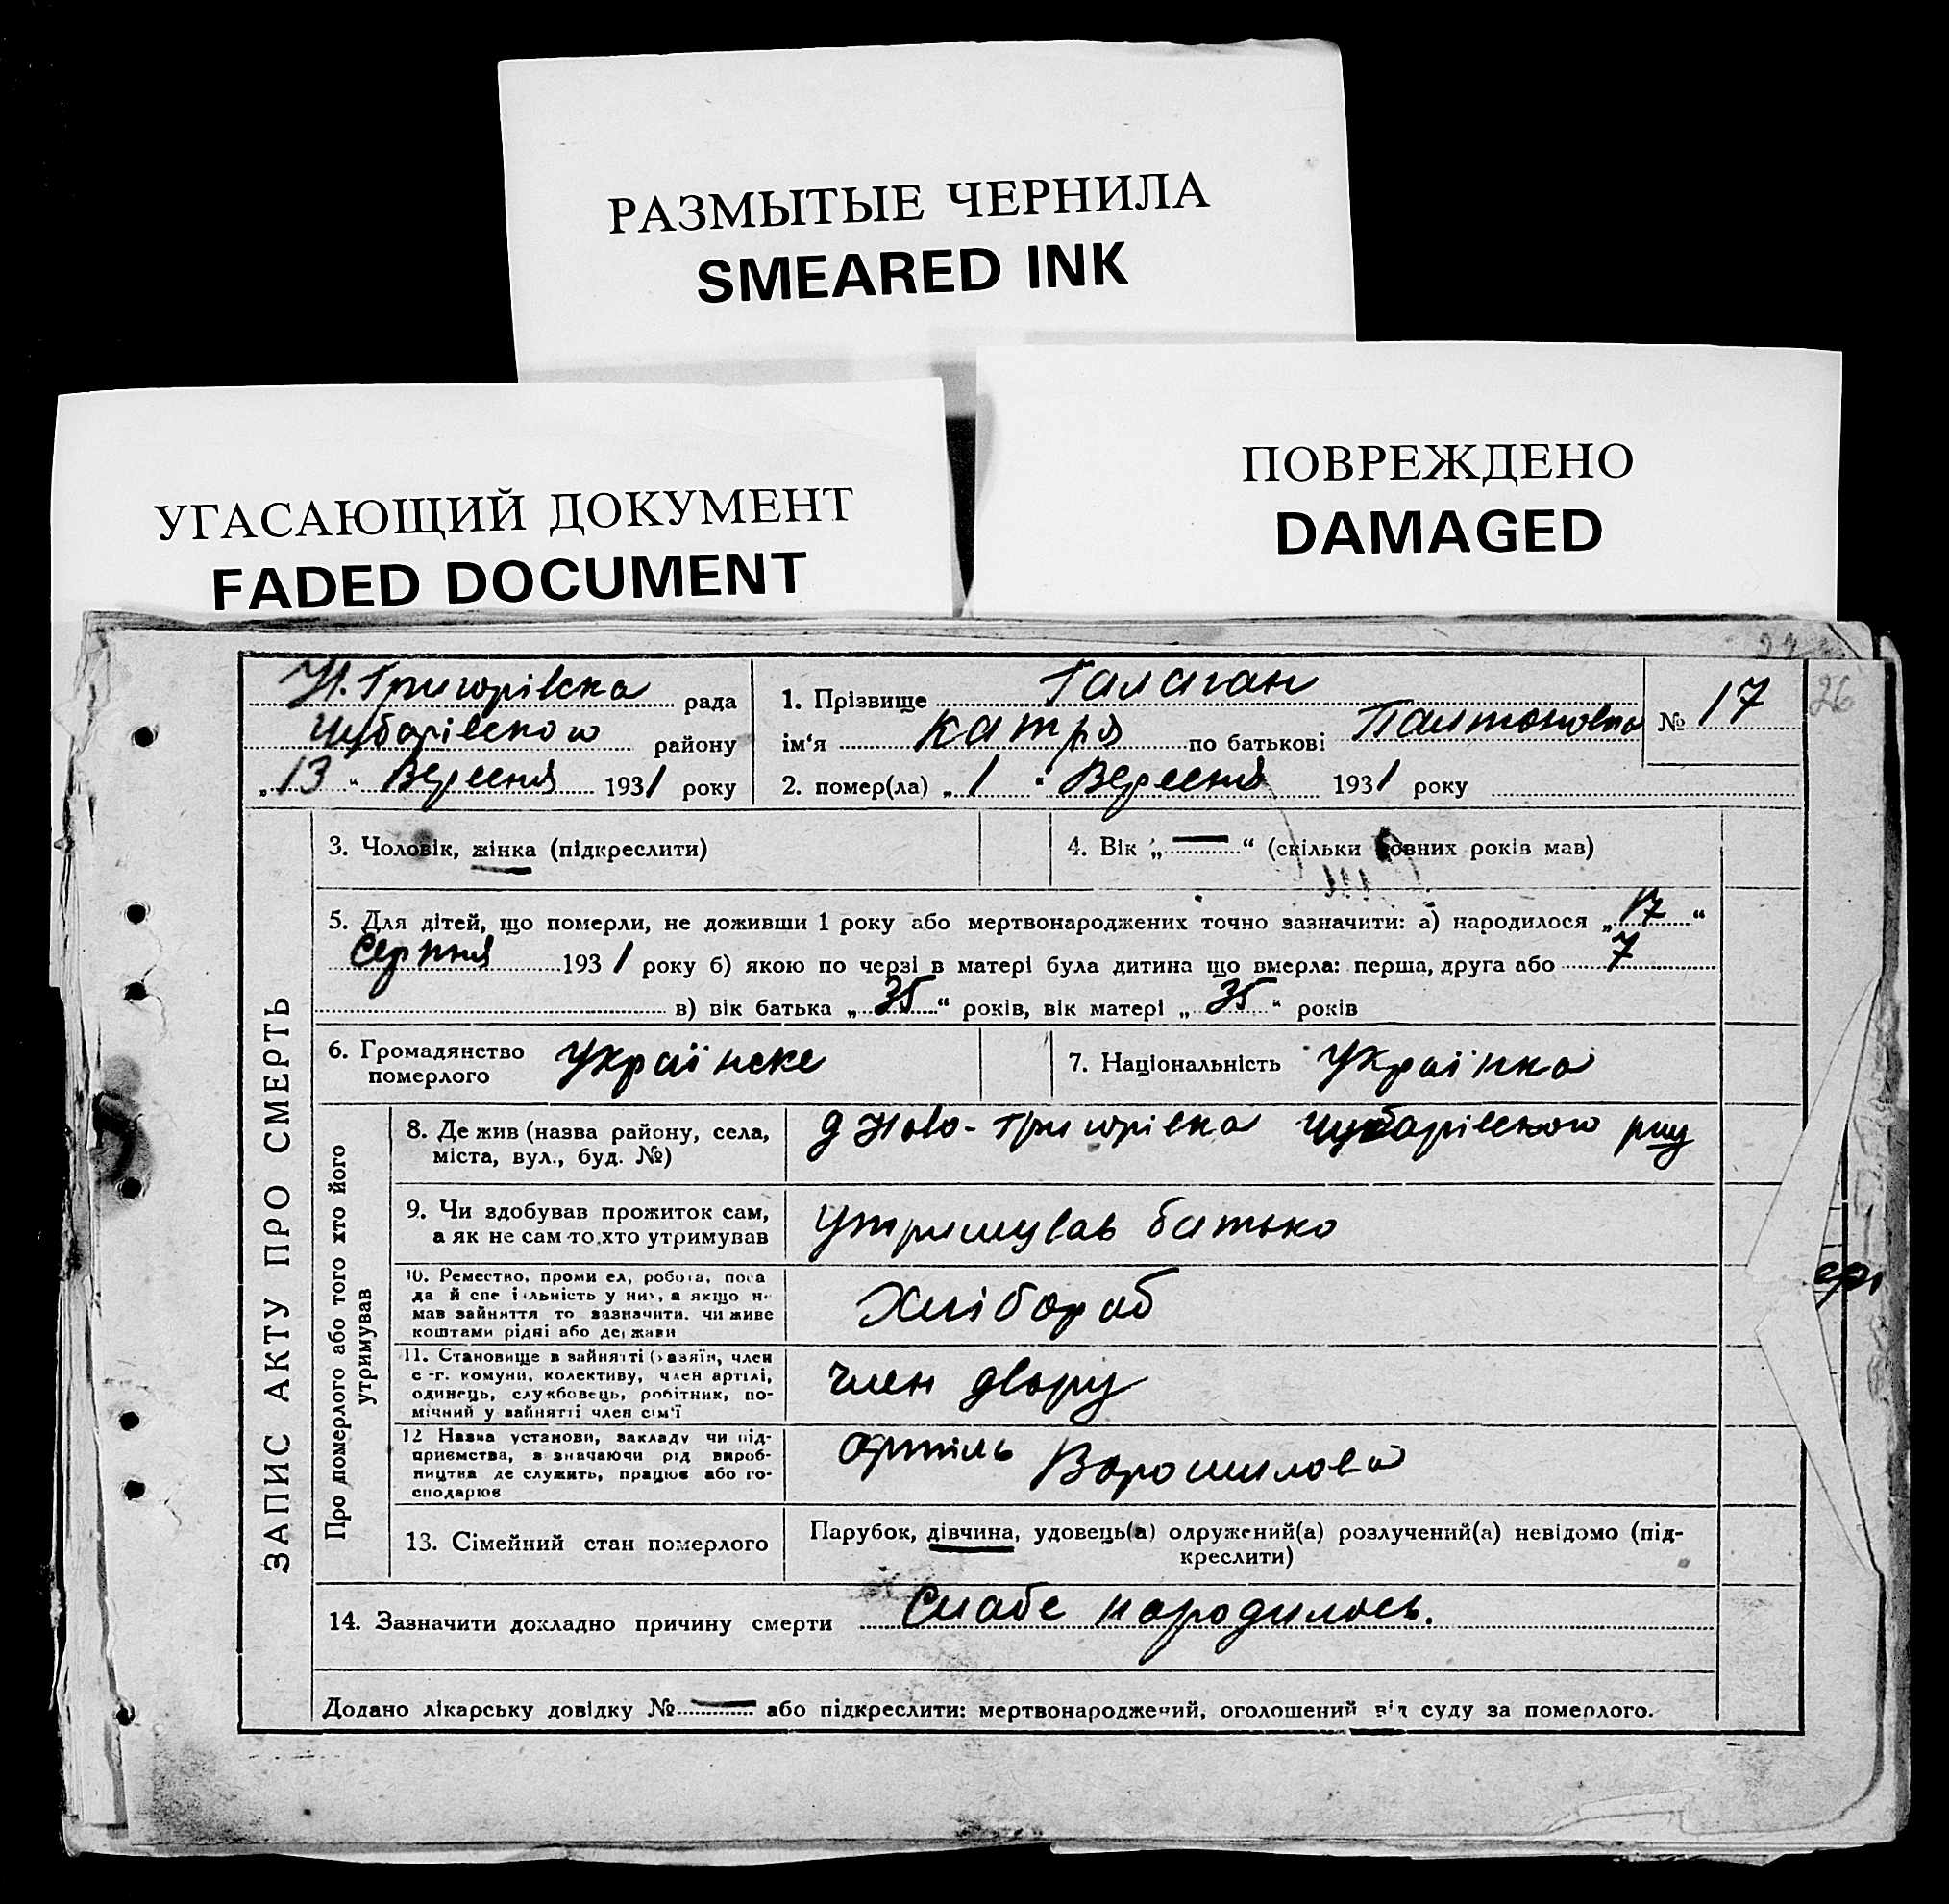 РАЗМЫТЫЕ ЧЕРНИЛА
SMEARED INK
УГАСАЮЩИЙ ДОКУМЕНТ
FADED DOCUMENT
ПОВРЕЖДЕНО
DAMAGED
26
Н. Григорівска рада
Чубарівского району
„13“ Вересня 1931 року
1. Прізвище Галаган
ім‘я Катря по батькові
№ 17
2. помер(ла) „1“ Вересня 1931 року
ЗАПИС АКТУ ПРО СМЕРТЬ
3. Чоловік, жінка (підкреслити)
4. Вік „—“ (скільки повних років мав)
5. Для дітей, що померли, не доживши 1 року або мертвонароджених точно зазначити: а) народилося „17“
Серпня 1931 року б) якою по черзі в матері була дитина що вмерла: перша, друга або 7
в) вік батька „35“ років, вік матері „35“ років
6. Громадянство
померлого
Українске
7. Національність Українка
Про померлого або того хто його
утримував
8. Де жив (назва району, села,
міста, вул., буд. №)
Ново-Григорівка Чубарівского
9. Чи здобував прожиток сам,
а як не сам то, хто утримував
утримував батько
10. Ремество, промисел, робота, поса
да й спеціяльність у них, а якщо не
мав зайняття то зазначити, чи живе
коштами рідні або держави
Хлібораб
11. Становище в зайнятті (хазяїн, член
с.-г. комуни, колективу, член артілі,
одинець, службовець, робітник, по-
мічний у зайнятті член сім'ї
член двору
12 Назва установи, закладу чи під-
приємства, зазначаючи рід вироб-
ництва де служить, працює або го-
сподарює
артіль Ворошилова
13. Сімейний стан померлого
Парубок, дівчина, удовець(а) одружений(а) розлучений(а) невідомо (під-
креслити)
14. Зазначити докладно причину смерти Слабе народилось.
Додано лікарську довідку №— або підкреслити: мертвонароджений, оголошений від суду за померлого.